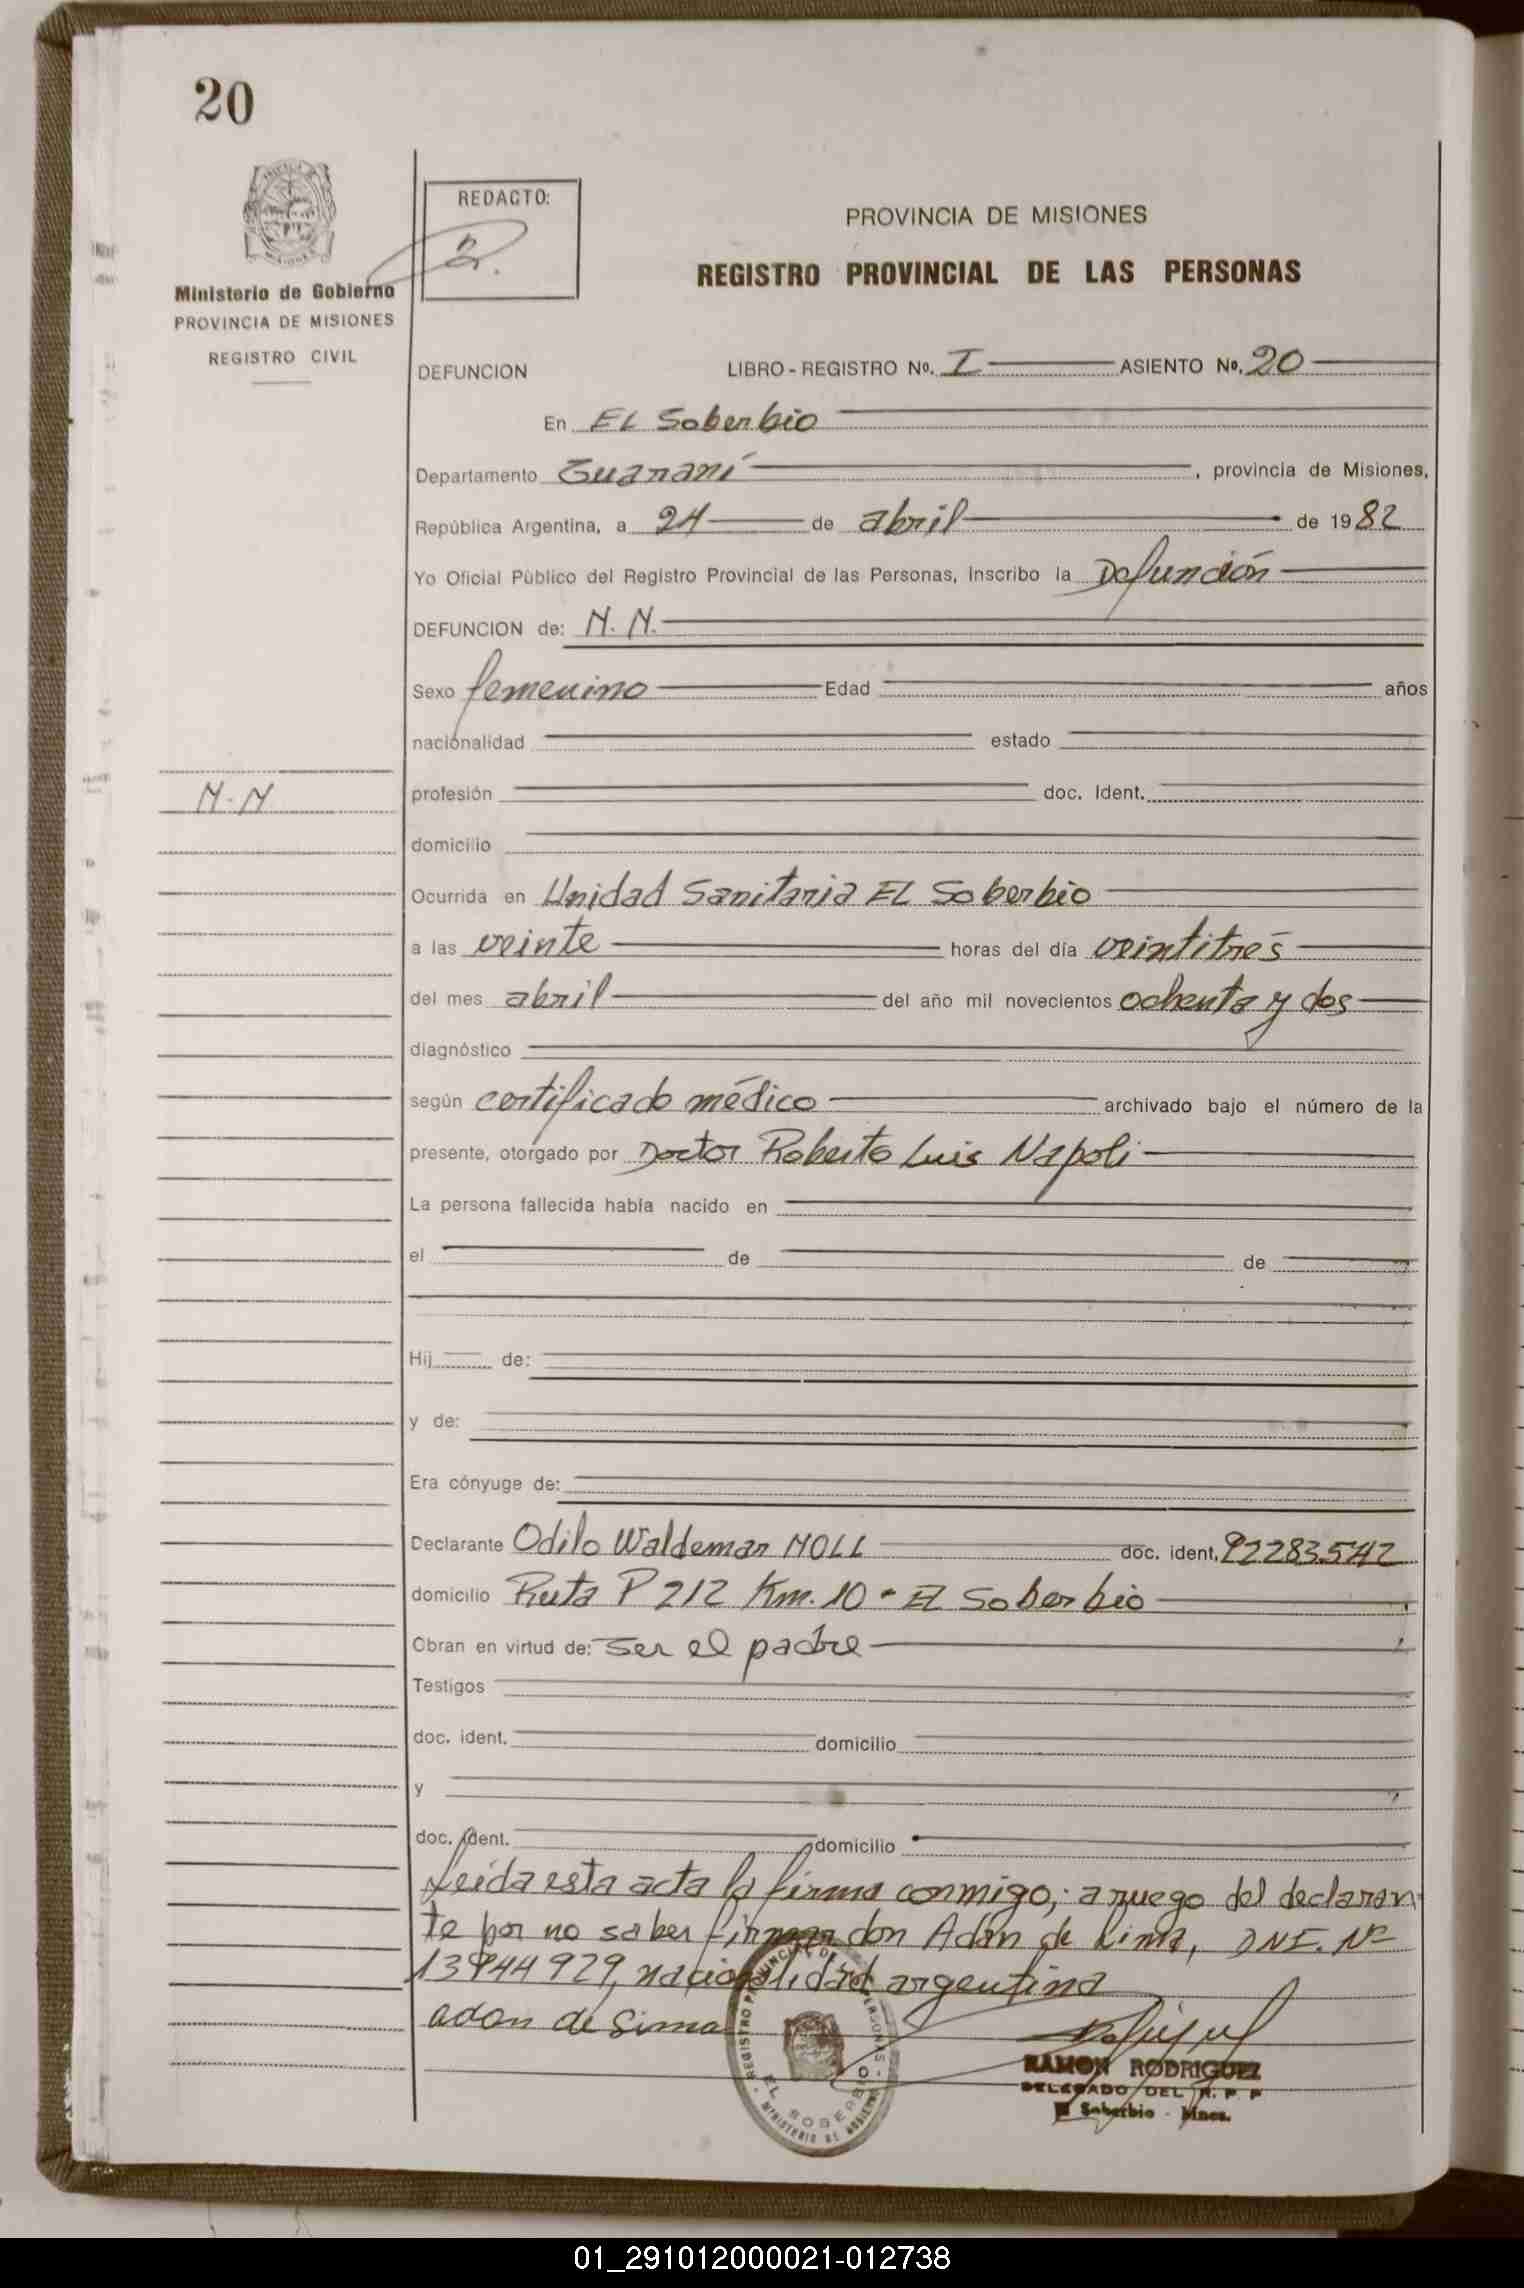 20
REDACTO:
Ministerio de Gobierno
PROVINCIA DE MISIONES
REGISTRO CIVIL
PROVINCIA DE MISIONES
REGISTRO PROVINCIAL DE LAS PERSONAS
DEFUNCION LIBRO - REGISTRO Nº. I ASIENTO Nº. 20
En EL Soberbio
Departamento Guaraní, provincia de Misiones,
República Argentina, a 24 de abril de 1982
Yo Oficial Público del Registro Provincial de las Personas, inscribo la Defunción
DEFUNCION de: N. N.
Sexo femenino Edad años
nacionalidad estado
N. N
profesión doc. Ident.
domicilio
Ocurrida en Unidad Sanitaria EL Soberbio
a las veinte horas del día veintitrés
del mes abril del año mil novecientos ochenta y dos
diagnóstico
según certificado médico archivado bajo el número de la
presente, otorgado por Doctor Roberto Luis Napoli
La persona fallecida había nacido en
el de de
Hij de:
y de:
Era cónyuge de:
Declarante Odilo Waldemar MOLL doc. ident. 92283542
domicilio Ruta P 212 Km. 10 - EL Soberbio
Obran en virtud de: ser el padre
Testigos
doc. ident. domicilio
y
doc. ident. domicilio
Leída esta acta la firma conmigo, a ruego del declaran
te por no saber firmar don Adán de Lima, DNI. Nº
13944929, nacionalidad argentina
adan de Lima
REGISTRO PROVINCIAL DE LAS PERSONAS
EL SOBERBIO
MINISTERIO DE GOBIERNO
RAMON RODRIGUEZ
DELEGADO DEL R. P. P
El Soberbio - Mnes.
01_291012000021-012738